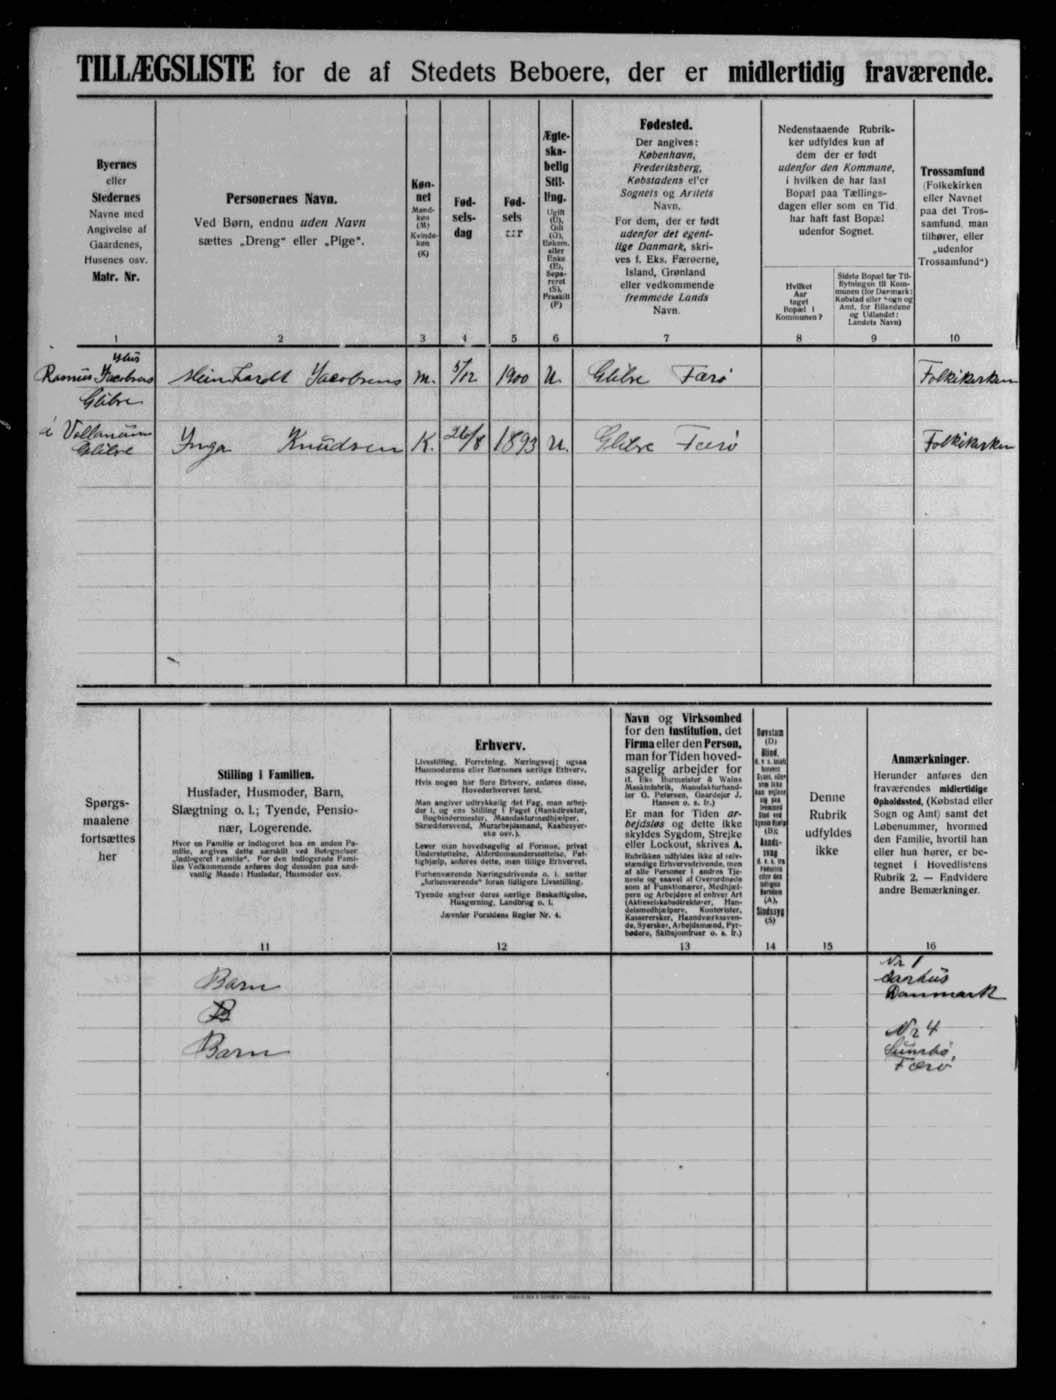 TILLÆGSLISTE for de af Stedets Beboere, der er midlertidig fraværende.
Byernes
eller
Stedernes
Navne med
Angivelse af
Gaardenes,
Husenes osv.
Matr. Nr.
1
Personernes Navn.
Ved Børn, endnu uden Navn
sættes „Dreng“ eller „Pige“.
2
Køn-
net
Mand-
køn
(M)
Kvinde-
køn
(K)
3
Fød-
sels-
dag
4
Fød-
sels
aar
5
Ægte-
ska-
belig
Stil-
ling.
Ugift
(U),
Gift
(G),
Enkem.
eller
Enke
(E),
Sepa-
reret
(S),
Fraskilt
(F)
6
Fødested.
Der angives:
København,
Frederiksberg,
Købstadens eller
Sognets og Amtets
Navn.
For dem, der er født
udenfor det egent-
lige Danmark, skri-
ves f. Eks. Færøerne,
Island, Grønland
eller vedkommende
fremmede Lands
Navn.
7
Nedenstaaende Rubrik-
ker udfyldes kun af
dem der er født
udenfor den Kommune,
i hvilken de har fast
Bopæl paa Tællings-
dagen eller som en Tid
har haft fast Bopæl
udenfor Sognet.
Hvilket
Aar
taget
Bopæl i
Kommunen?
8
Sidste Bopæl før Til-
flytningen til Kom-
munen (for Danmark:
Købstad eller Sogn og
Amt, for Bilandene
og Udlandet:
Landets Navn)
9
Trossamfund
(Folkekirken
eller Navnet
paa det Tros-
samfund, man
tilhører, eller
„udenfor
Trossamfund“)
10
Hus
Rasmus Jacobsens Meinhardt Jacobsens M. 5/12 1900 U. Glibre Færø Folkikirken
Glibre
á Vollanum Inga Knudsen K. 26/8 1893 U. Glibre Færø Folkikirken
Glibre
Spørgs-
maalene
fortsættes
her
Stilling i Familien.
Husfader, Husmoder, Barn,
Slægtning o. l.; Tyende, Pensio-
nær, Logerende.
Hvor en Familie er indlogeret hos en anden Fa-
milie, angives dette særskilt ved Betegnelser:
„Indlogeret Familie“. For den indlogerede Fami-
lies Vedkommende anføres dog desuden paa sæd-
vanlig Maade: Husfader, Husmoder osv.
11
Erhverv.
Livsstilling, Forretning, Næringsvej; ogsaa
Husmoderens eller Børnenes særlige Erhverv.
Hvis nogen har flere Erhverv, anføres disse,
Hovederhvervet først.
Man angiver udtrykkelig det Fag, man arbej-
der i, og ens Stilling i Faget (Mønkdirektør,
Bogbindermester, Manufakturmedhjælper,
Skræddersvend, Murarbejdsmand, Kaabesyer-
ske osv.).
Lever man hovedsagelig af Formue, privat
Understøttelse, Alderdomsunderstøttelse, Fat-
tighjælp, anføres dette, men tillige Erhvervet.
Forhenværende Næringsdrivende o. l. sætter
„forhenværende“ foran tidligere Livsstilling.
Tyende angiver deres særlige Beskæftigelse,
Husgerning, Landbrug o. l.
Jævnfør Forsidens Regler Nr. 4.
12
Navn og Virksomhed
for den Institution, det
Firma eller den Person,
man for Tiden hoved-
sagelig arbejder for
(f. Eks Burmeister & Wains
Maskinfabrik, Manufakturhand-
ler O. Petersen, Gaardejer J.
Hansen o. s. fr.)
Er man for Tiden ar-
bejdsløs og dette ikke
skyldes Sygdom, Strejke
eller Lockout, skrives A.
Rubrikken udfyldes ikke af selv-
stændige Erhvervsdrivende, men
af alle Personer i andres Tje-
neste og saavel af Overordnede
som af Funktionærer, Medhjæl-
pere og Arbejdere af enhver Art
(Aktieselskabsdirektører, Han-
delsmedhjælpere, Kontorister,
Kasserersker, Haandværkssven-
de, Syersker, Arbejdsmænd, Fyr-
bødere, Skibsjomfruer o. s. fr.)
13
Døvstum
(D)
Blind,
14
Denne
Rubrik
udfyldes
ikke
15
Anmærkninger.
Herunder anføres den
fraværendes midlertidige
Opholdssted, (Købstad eller
Sogn og Amt) samt det
Løbenummer, hvormed
den Familie, hvortil han
eller hun hører, er be-
tegnet i Hovedlistens
Rubrik 2. — Endvidere
andre Bemærkninger.
16
Barn
Nr 1
Aarhus
Danmark
B
Barn
Nr 4
Sumbø,
Færø